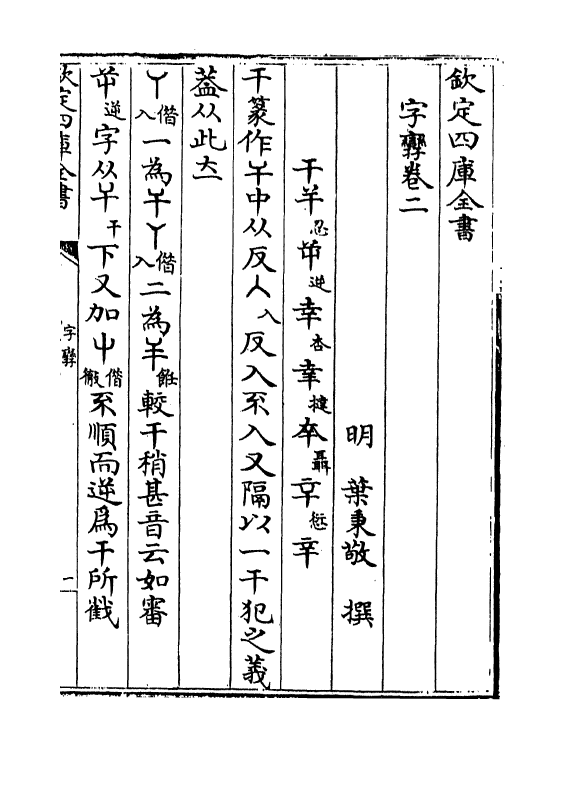 欽定四庫全書
字孿卷二
明 葉秉敬 撰
干𢆉忍屰逆幸杏㚔㨗卒聶䇂愆辛
干篆作𢆉中从反人入反入不入又隔以一干犯之義
葢从此𡗗
丫偕入一為𢆉丫偕入二為𢆉飪較干稍甚音云如審
屰逆字从𢆉干下又加屮偕徹不順而逆爲干所戳
欽定四庫全書
字孿
一